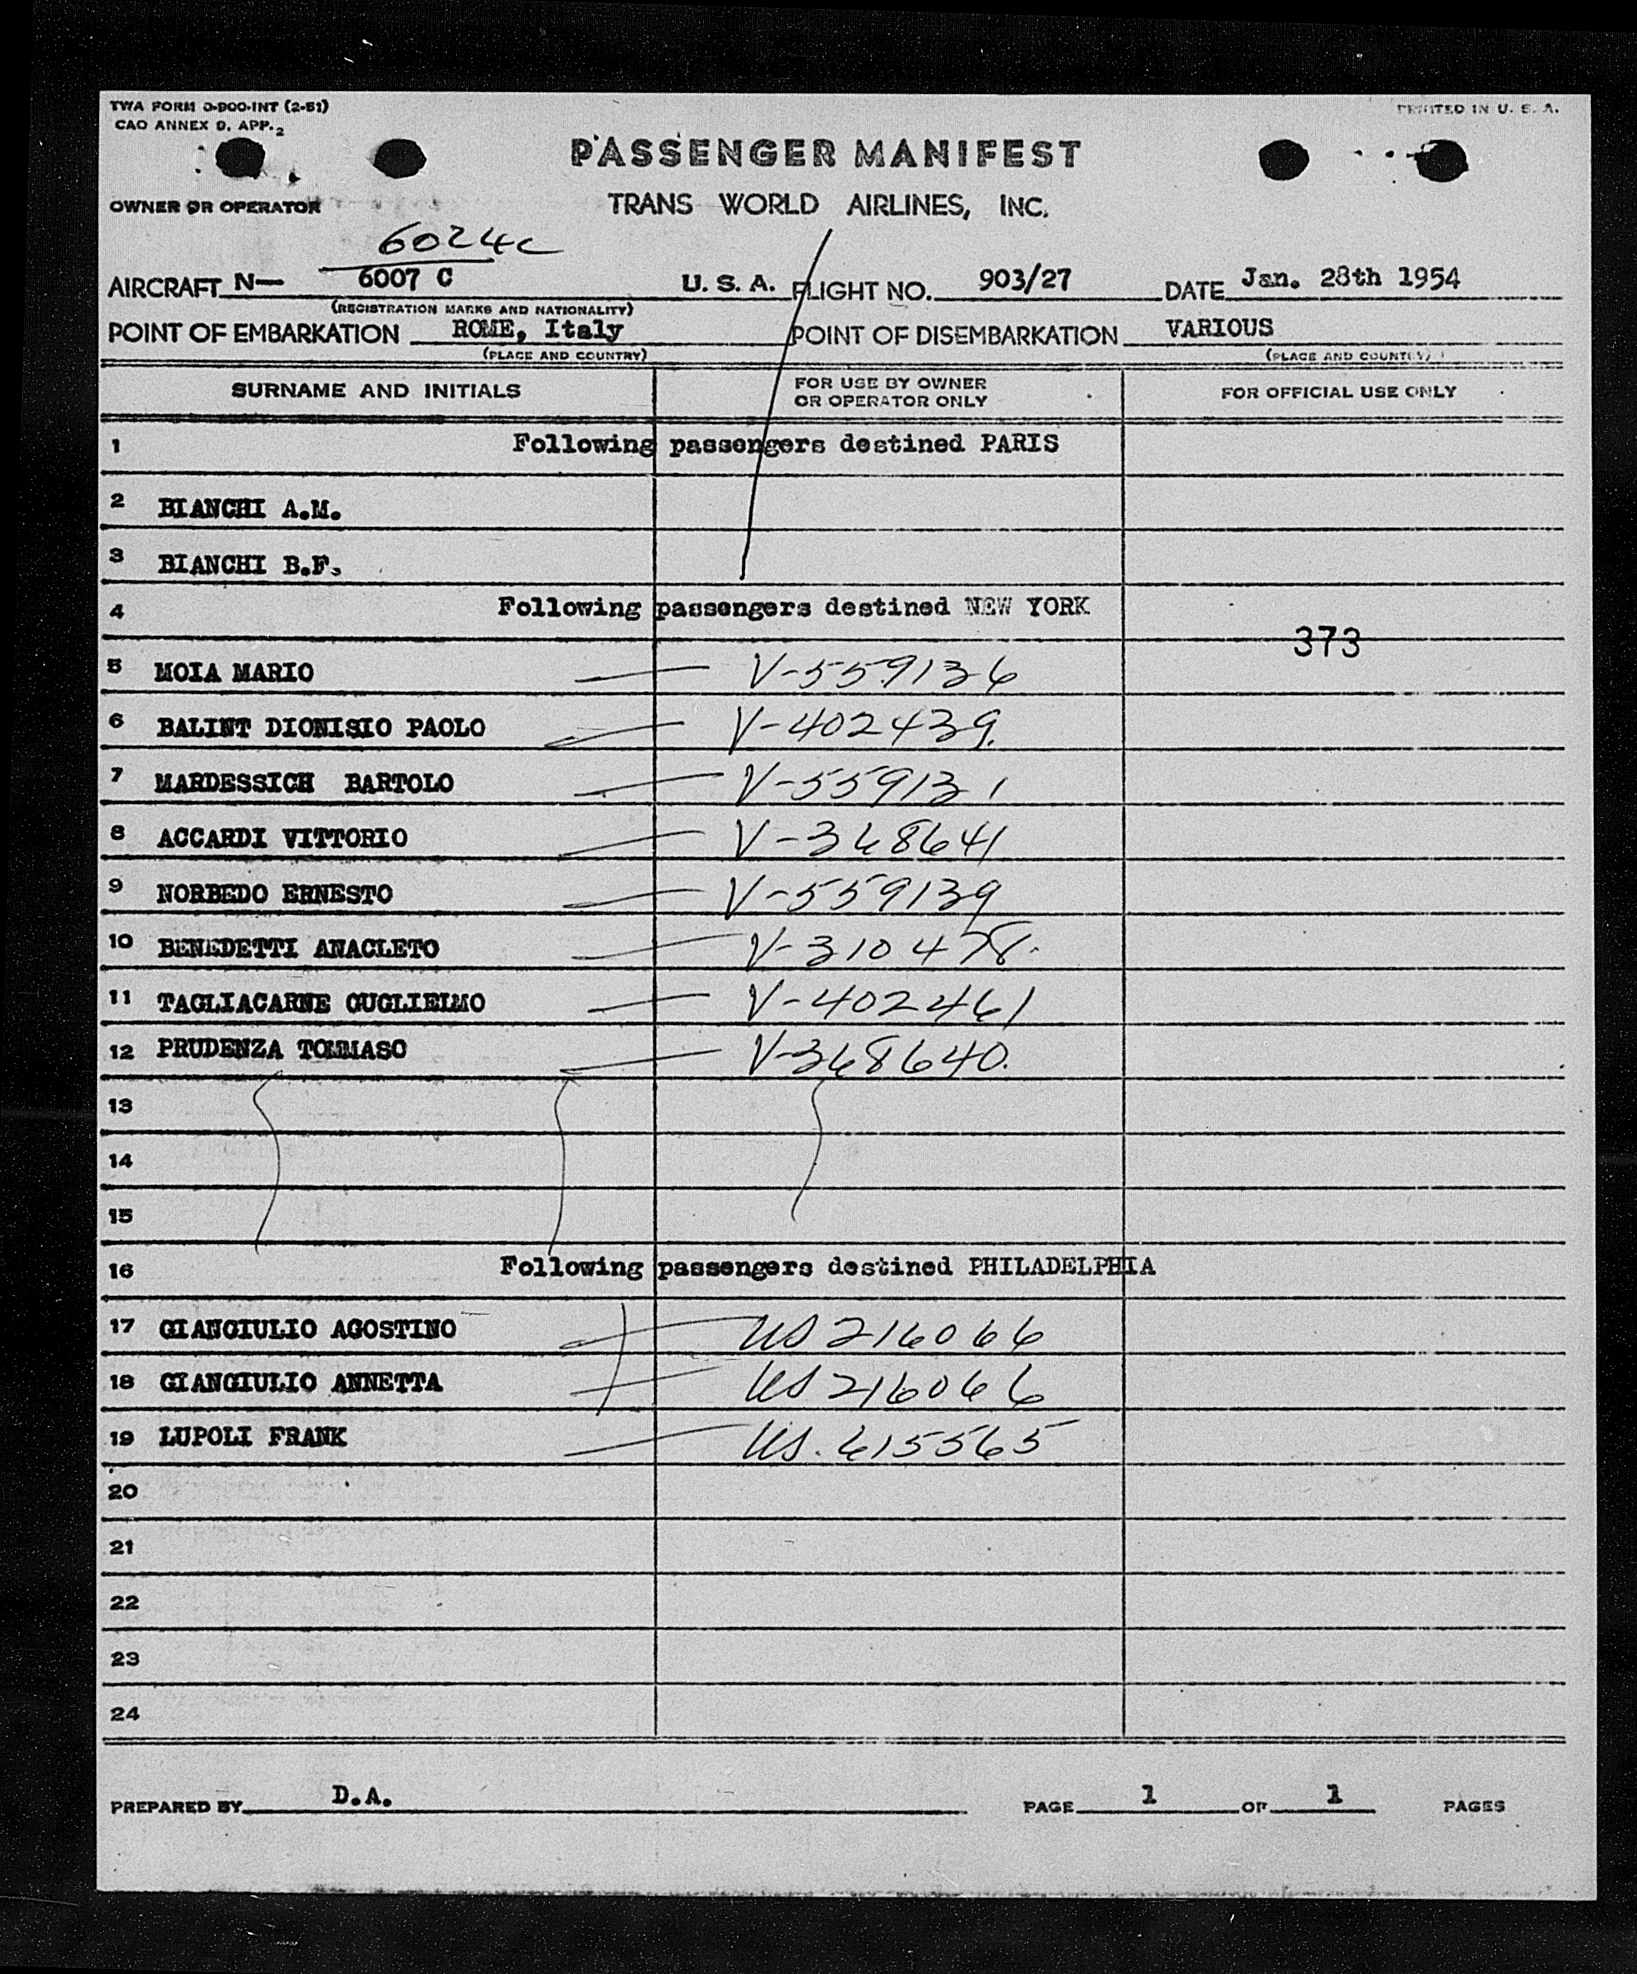 TWA FORM O-900-INT (2-51)
PRINTED IN U. S. A.
CAO ANNEX 9, APP. 2
PASSENGER MANIFEST
OWNER OR OPERATOR TRANS WORLD AIRLINES, INC.
6024C
AIRCRAFT N— 6007 C U. S. A. FLIGHT NO. 903/27 DATE Jan. 28th 1954
(REGISTRATION MARKS AND NATIONALITY)
POINT OF EMBARKATION ROME, Italy POINT OF DISEMBARKATION VARIOUS
(PLACE AND COUNTRY) (PLACE AND COUNTRY)
SURNAME AND INITIALS FOR USE BY OWNER OR OPERATOR ONLY FOR OFFICIAL USE ONLY
1 Following passengers destined PARIS
2 BIANCHI A.M.
3 BIANCHI B.F.
4 Following passengers destined NEW YORK
373
5 MOIA MARIO V-559136
6 BALINT DIONISIO PAOLO V-402439.
7 MARDESSICH BARTOLO V-559131
8 ACCARDI VITTORIO V-368641
9 NORBEDO ERNESTO V-559139
10 BENEDETTI ANACLETO V-310478.
11 TAGLIACARNE GUGLIELMO V-402461
12 PRUDENZA TOMMASO V-368640.
13
14
15
16 Following passengers destined PHILADELPHIA
17 GIANGIULIO AGOSTINO US 216066
18 GIANGIULIO ANNETTA US 216066
19 LUPOLI FRANK US. 615565
20
21
22
23
24
PREPARED BY D.A. PAGE 1 OF 1 PAGES